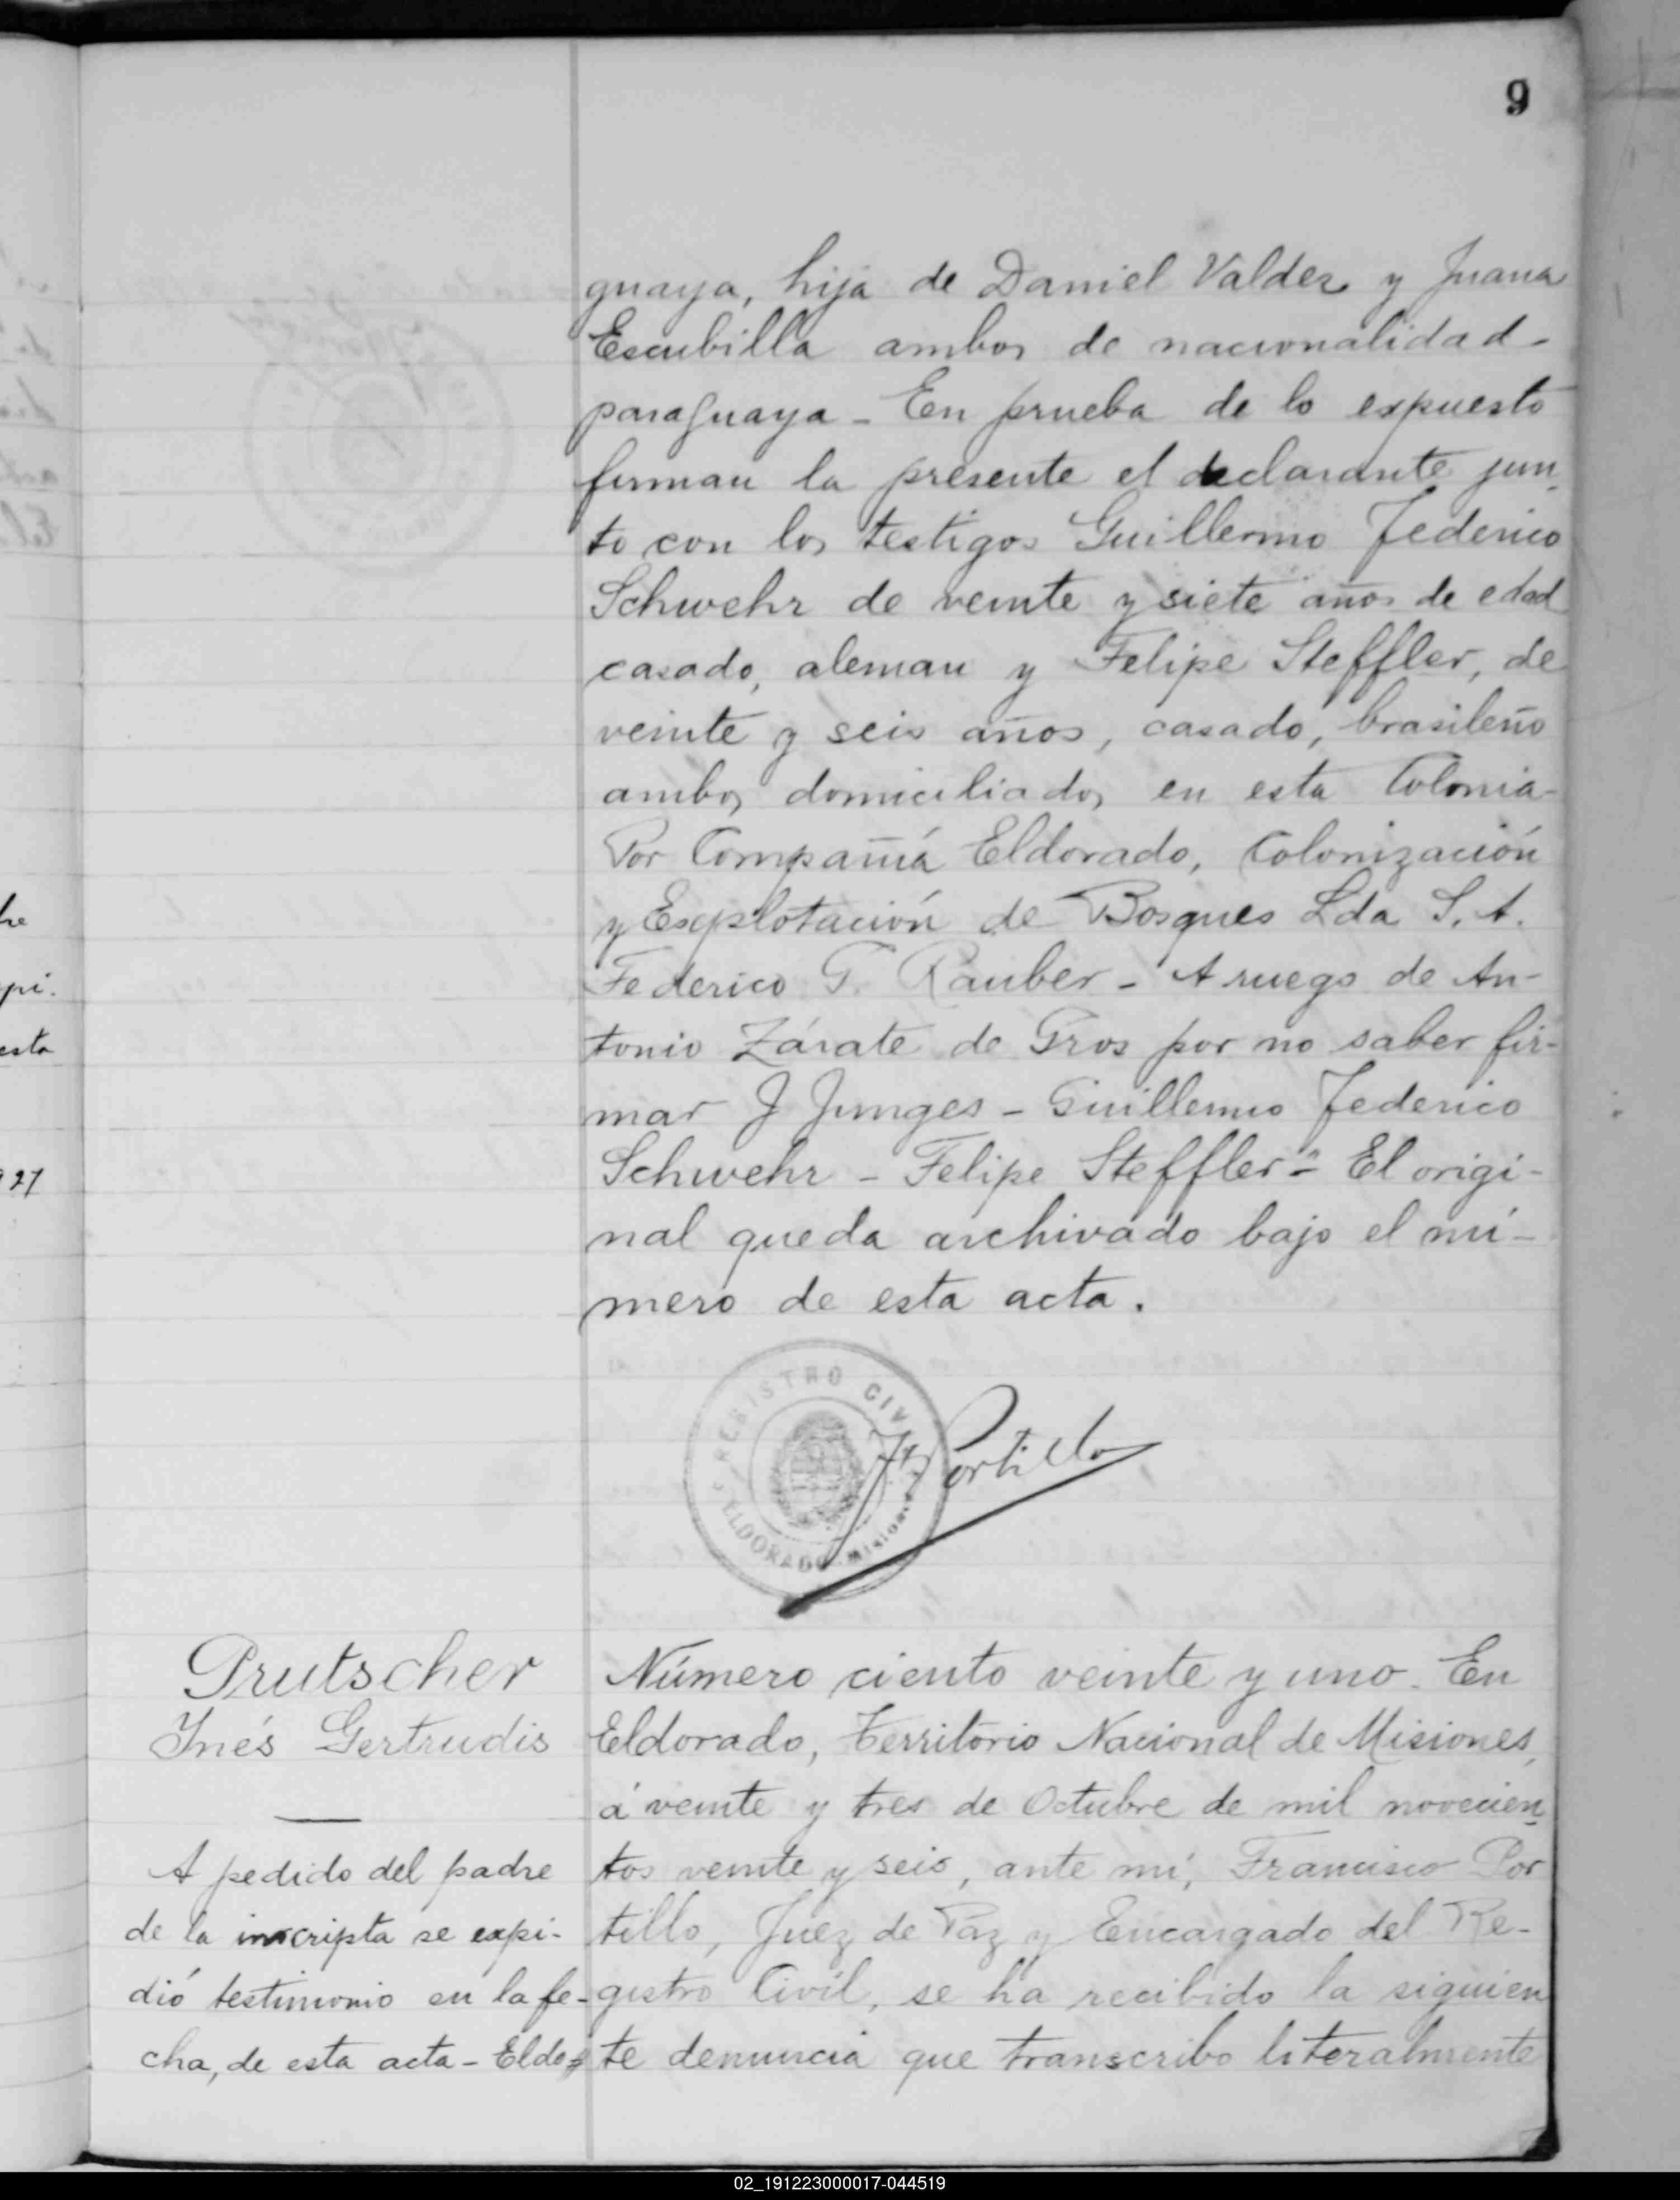 9
guaya, hija de Daniel Valdez y Juana
Escubilla ambos de nacionalidad -
paraguaya - En prueba de lo expuesto
firman la presente el declarante jun
to con los testigos Guillermo Federico
Schwehr de veinte y siete años de edad
casado, aleman y Felipe Steffler, de
veinte y seis años, casado, brasileño
ambos domiciliados en esta Colonia -
Por Compañiá Eldorado, Colonización
y Esxplotación de Bosques Lda S. A.
Federico G. Rauber - A ruego de An-
tonio Zárate de Gros por no saber fir-
mar J Junges - Guillermo Federico
Schwehr - Felipe Steffler - El origi-
nal queda archivado bajo el nú-
mero de esta acta.
REGISTRO CIVIL
ELDORADO - Misiones
Portillo
Prutscher
Inés Gertrudis
A pedido del padre
de la inscripta se expi-
dió testimonio en la fe-
cha, de esta acta - Eldo=
Número ciento veinte y uno. En
Eldorado, Territorio Nacional de Misiones,
á veinte y tres de Octubre de mil novecien
tos veinte y seis, ante mí, Francisco Por
tillo, Juez de Paz y Encargado del Re-
gistro Civil, se ha recibido la siguien
te denuncia que transcribo literalmente
he
pi.
esta
927
02_191223000017-044519